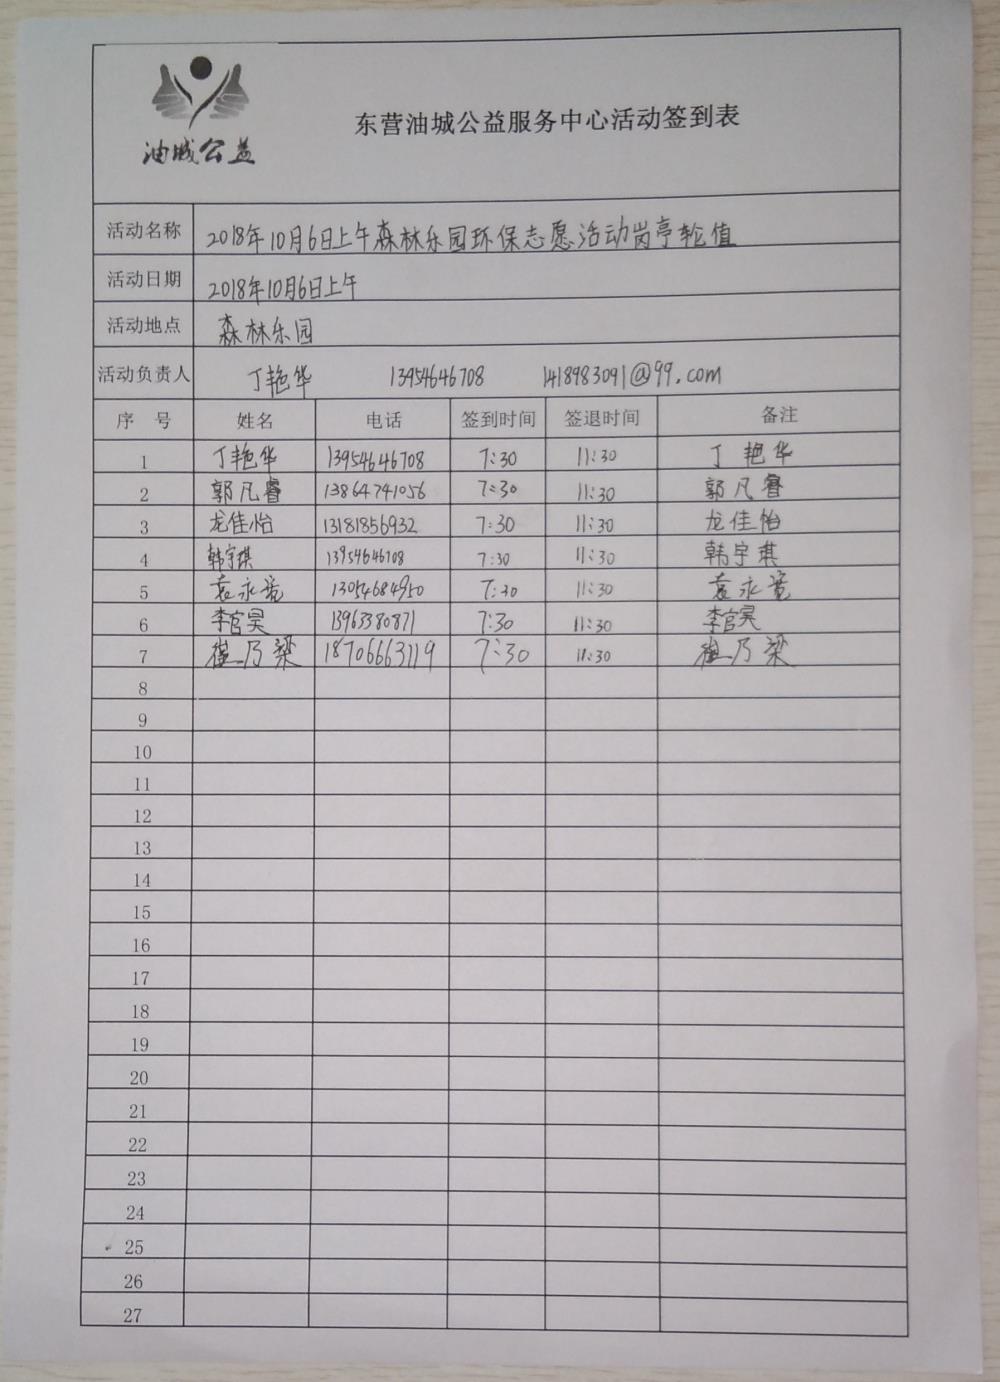 油城公益
东营油城公益服务中心活动签到表
活动名称 2018年10月6日上午森林乐园环保志愿活动岗亭轮值
活动日期 2018年10月6日上午
活动地点 森林乐园
活动负责人 丁艳华 13954646708 1418983091@99.com
序 号 姓名 电话 签到时间 签退时间 备注
1 丁艳华 13954646708 7:30 11:30 丁艳华
2 郭凡睿 13864741056 7:30 11:30 郭凡睿
3 龙佳怡 13181856932 7:30 11:30 龙佳怡
4 韩宇琪 13954646708 7:30 11:30 韩宇琪
5 袁永 13054684950 7:30 11:30 袁永
6 李官昊 13963380871 7:30 11:30 李官昊
7 崔乃梁 18706663119 7:30 11:30 崔乃梁
8
9
10
11
12
13
14
15
16
17
18
19
20
21
22
23
24
25
26
27